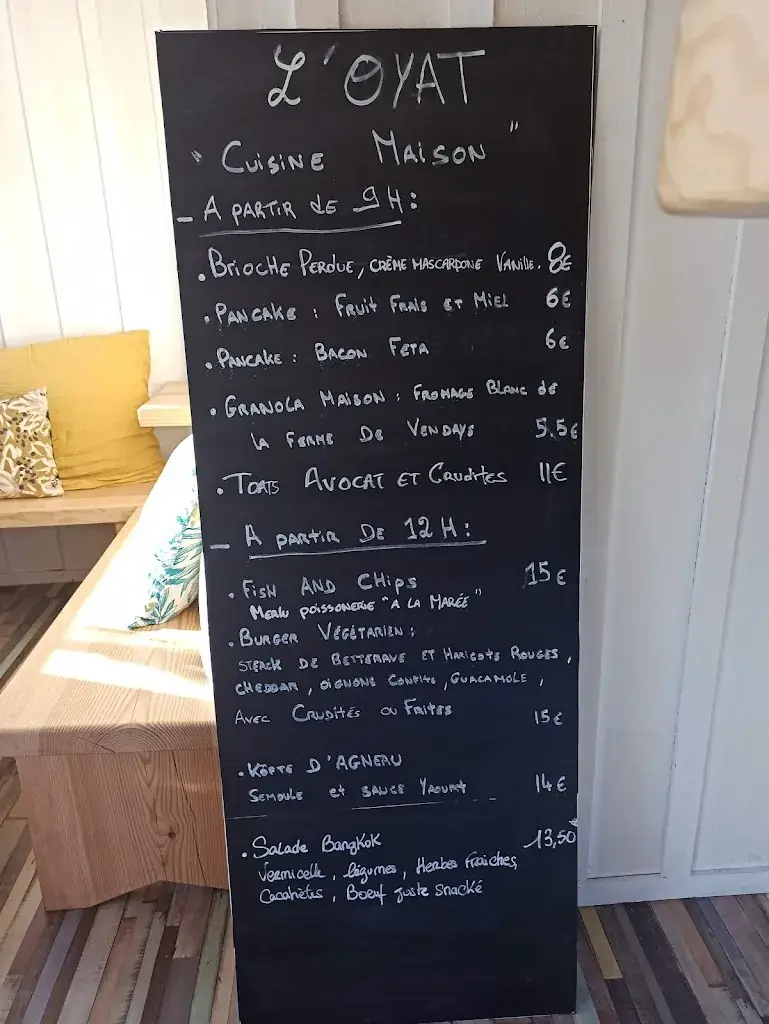 L'OYAT
"CUISINE MAISON"
- A PARTIR DE 9H:
. BRIOCHE PERDUE, CRÈME MASCARPONE VANILLE. 8€
. PANCAKE : FRUIT FRAIS ET MIEL 6€
. PANCAKE : BACON FETA 6€
. GRANOLA MAISON : FROMAGE BLANC DE
LA FERME DE VENDAYS 5.5€
. TOATS AVOCAT ET CRUDITES 11€
- A PARTIR DE 12H:
. FISH AND CHIPS 15€
MERLU POISSONERIE "A LA MARÉE"
. BURGER VÉGÉTARIEN :
STEACK DE BETTERAVE ET HARICOTS ROUGES,
CHEDDAR, OIGNONS CONFITS, GUACAMOLE,
AVEC CRUDITÉS OU FRITES 15€
. KÖFTE D'AGNEAU
SEMOULE ET SAUCE YAOURT 14€
. Salade BangKok 13,50€
Vermicelle, légumes, Herbes Fraiches,
Cacahètes, Boeuf juste snacké